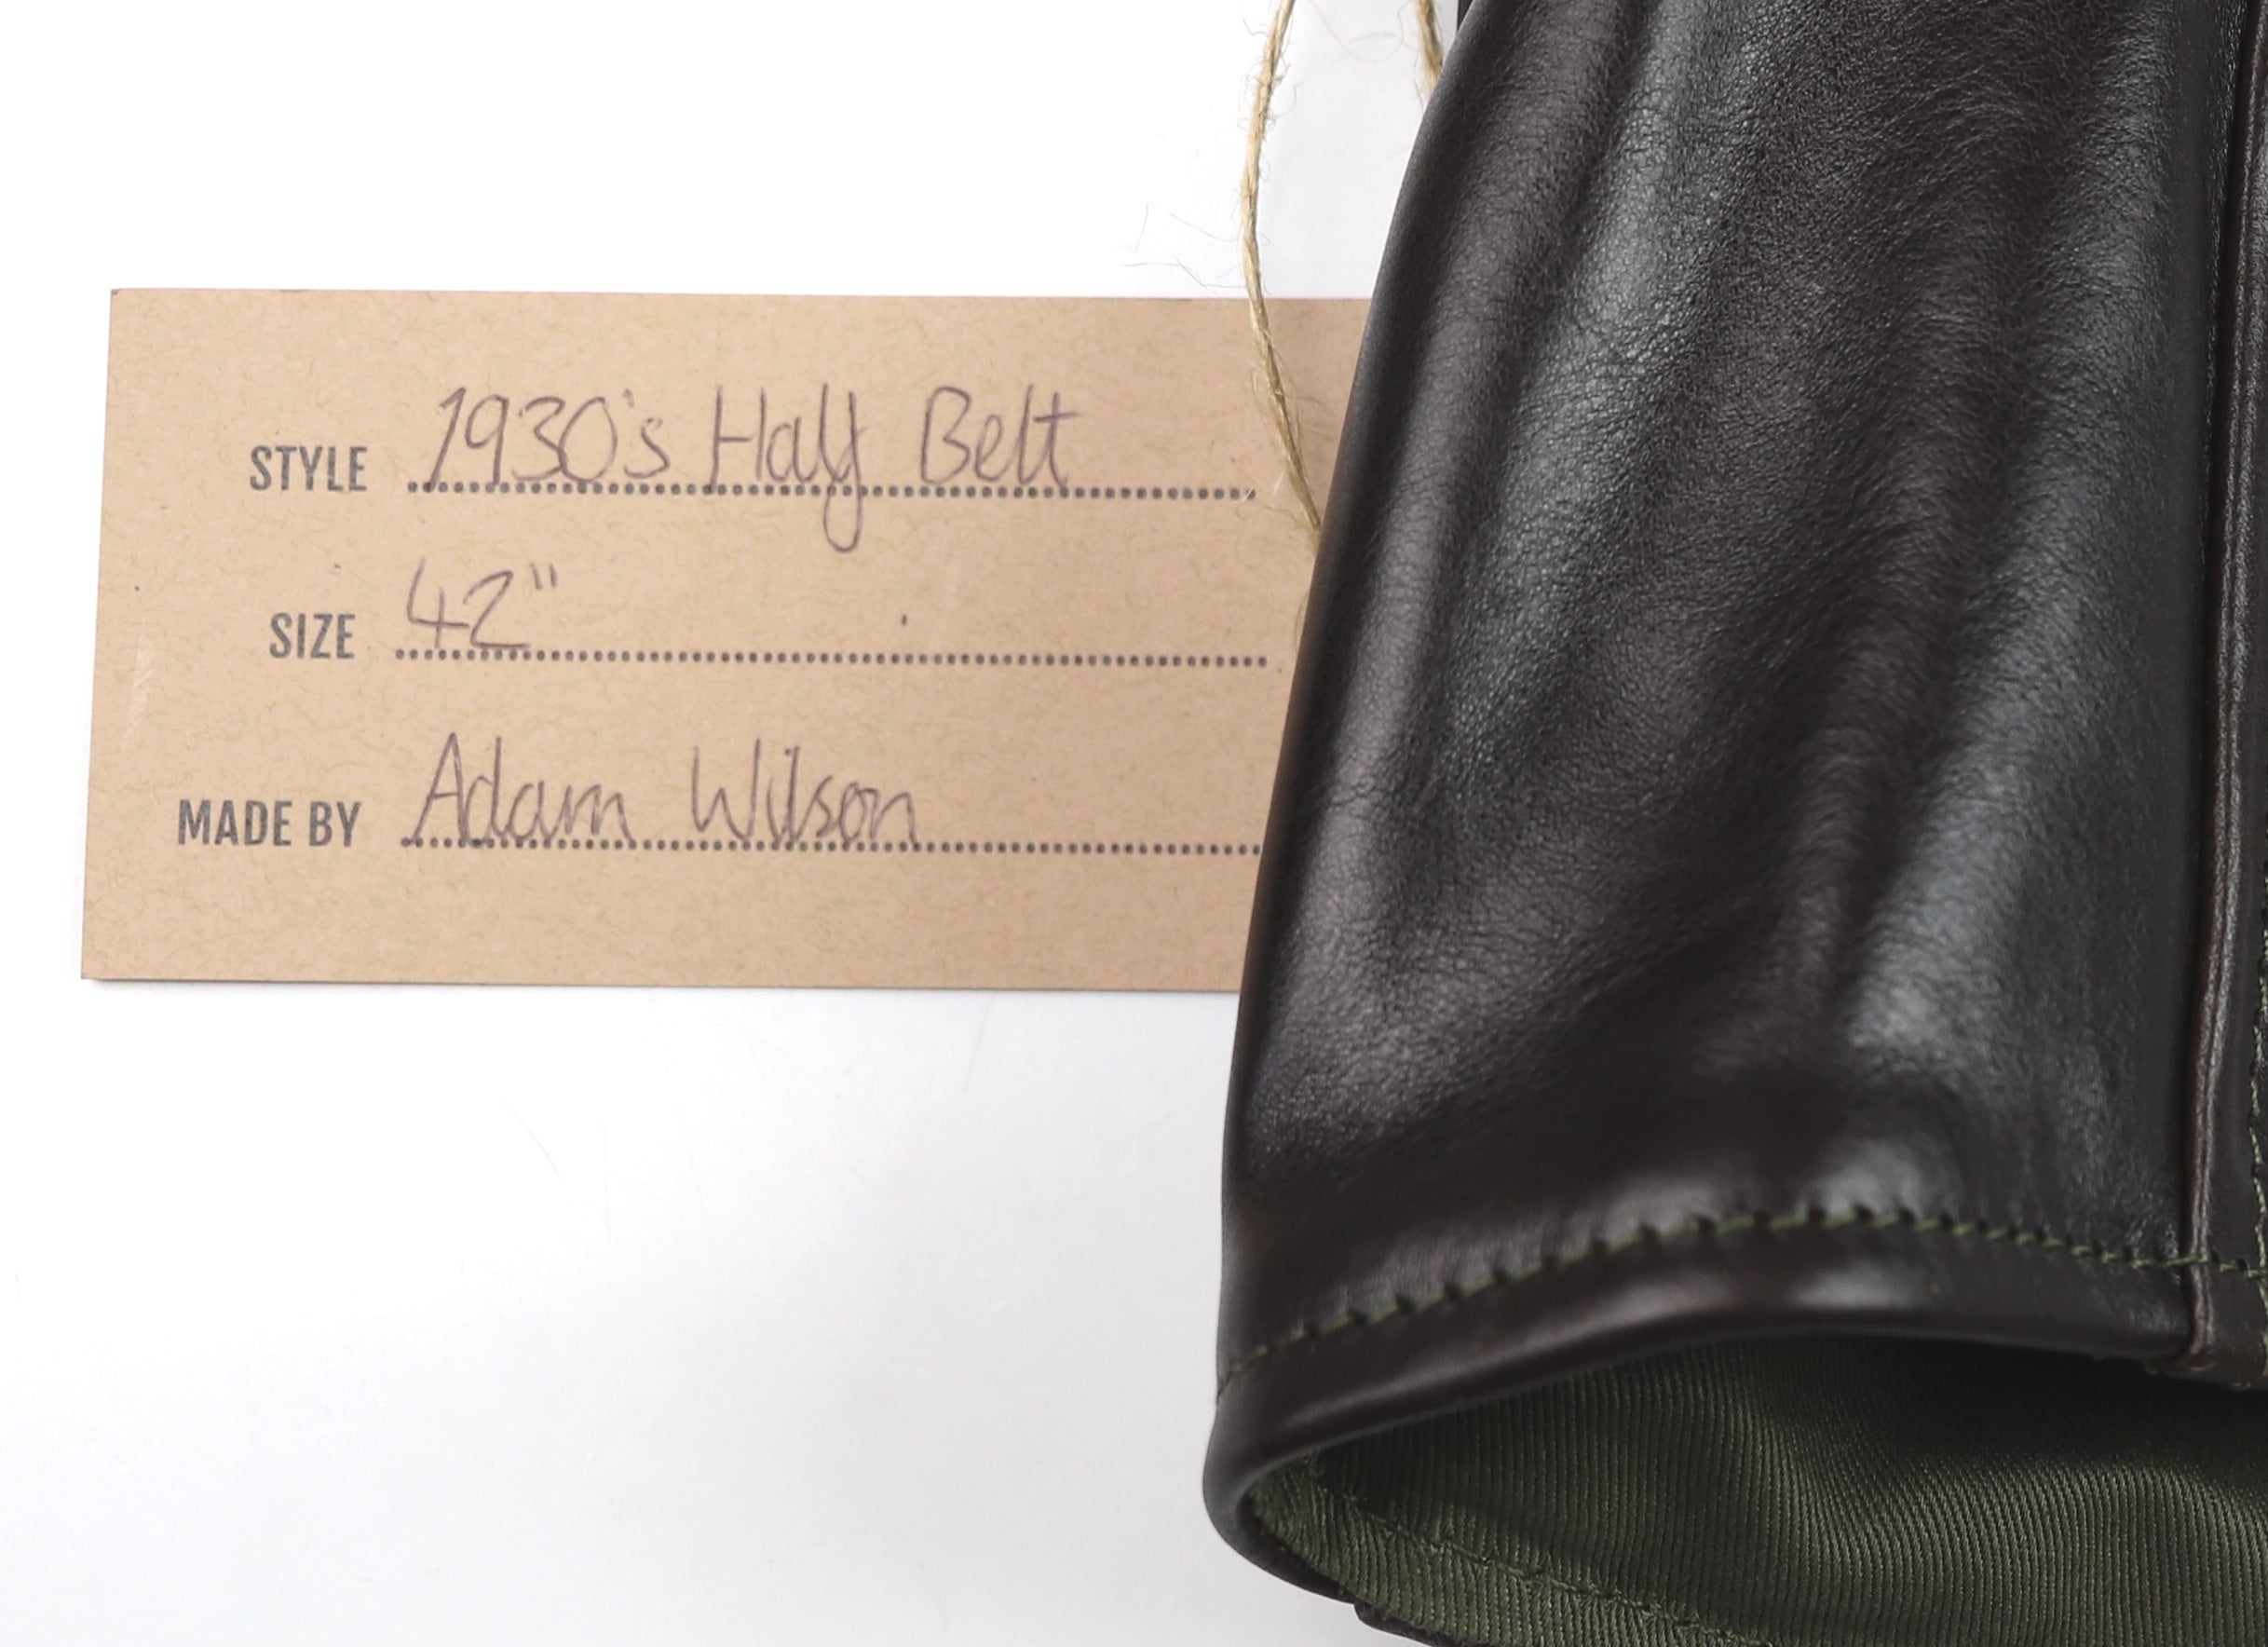 STYLE 1930's Half Belt
SIZE 42"
MADE BY Adam Wilson